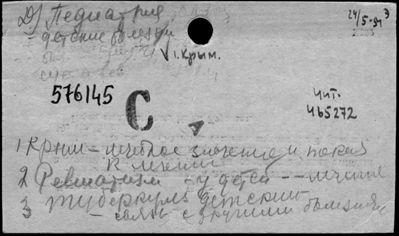 Д) Педиатрия
24/5-91 Э
– детские болезни
1. Крым.
суставов
576145
чит.
465272
С
1 Крым – лечебное значение и показ.
к лечению
2 Ревматизм – у детей – – лечение
3 Туберкулез детский
– связь с другими болезнями